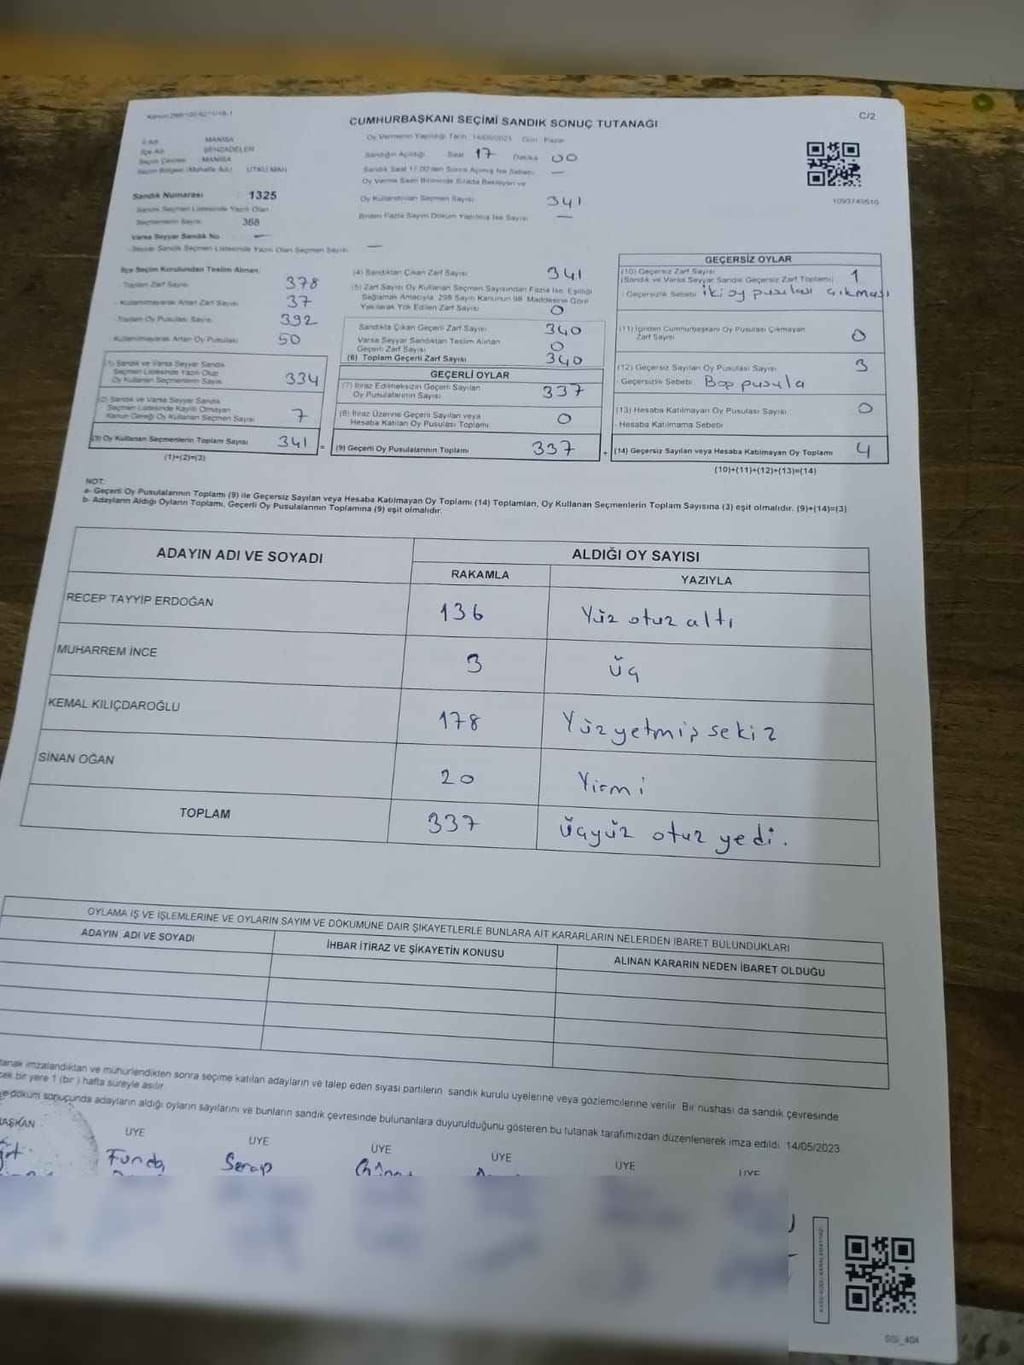 CUMHURBAŞKANI SEÇİMİ SANDIK SONUÇ TUTANAĞI
C/2
İl Adı MANİSA
İlçe Adı ŞEHZADELER
Seçim Çevresi MANİSA
Seçim Bölgesi (Mahalle Adı) UTKU MAH.
Sandık Numarası 1325
Sandık Seçmen Listesinde Yazılı Olan
Seçmenlerin Sayısı 368
Varsa Seyyar Sandık No —
Seyyar Sandık Seçmen Listesinde Yazılı Olan Seçmen Sayısı —
Oy Vermenin Yapıldığı Tarih 14/05/2023 Gün Pazar
Sandığın Açıldığı Saat 17 Dakika 00
Sandık Saat 17.00'den Sonra Açılmış İse Sebebi —
Oy Verme Saati Bitiminde Sırada Bekleyen ve
Oy Kullandırılan Seçmen Sayısı 341
Birden Fazla Sayım Döküm Yapılmış İse Sayısı —
İlçe Seçim Kurulundan Teslim Alınan
Toplam Zarf Sayısı 378
Kullanılmayarak Artan Zarf Sayısı 37
Toplam Oy Pusulası Sayısı 392
Kullanılmayarak Artan Oy Pusulası 50
(1) Sandık ve Varsa Seyyar Sandık
Seçmen Listesinde Yazılı Olup
Oy Kullanan Seçmenlerin Sayısı 334
(2) Sandık ve Varsa Seyyar Sandık
Seçmen Listesinde Kayıtlı Olmayan
Kanun Gereği Oy Kullanan Seçmen Sayısı 7
(3) Oy Kullanan Seçmenlerin Toplam Sayısı 341 =
(1)+(2)=(3)
(4) Sandıktan Çıkan Zarf Sayısı 341
(5) Zarf Sayısı Oy Kullanan Seçmen Sayısından Fazla İse, Eşitliği
Sağlamak Amacıyla 298 Sayılı Kanunun 98. Maddesine Göre
Yakılarak Yok Edilen Zarf Sayısı 0
Sandıkta Çıkan Geçerli Zarf Sayısı 340
Varsa Seyyar Sandıktan Teslim Alınan
Geçerli Zarf Sayısı 0
(6) Toplam Geçerli Zarf Sayısı 340
GEÇERLİ OYLAR
(7) İtiraz Edilmeksizin Geçerli Sayılan
Oy Pusulalarının Sayısı 337
(8) İtiraz Üzerine Geçerli Sayılan veya
Hesaba Katılan Oy Pusulası Toplamı 0
(9) Geçerli Oy Pusulalarının Toplamı 337 +
1093749510
GEÇERSİZ OYLAR
(10) Geçersiz Zarf Sayısı
(Sandık ve Varsa Seyyar Sandık Geçersiz Zarf Toplamı) 1
- Geçersizlik Sebebi İki oy pusulası çıkması
(11) İçinden Cumhurbaşkanı Oy Pusulası Çıkmayan
Zarf Sayısı 0
(12) Geçersiz Sayılan Oy Pusulası Sayısı 3
- Geçersizlik Sebebi Boş pusula
(13) Hesaba Katılmayan Oy Pusulası Sayısı 0
- Hesaba Katılmama Sebebi
(14) Geçersiz Sayılan veya Hesaba Katılmayan Oy Toplamı 4
(10)+(11)+(12)+(13)=(14)
NOT:
a- Geçerli Oy Pusulalarının Toplamı (9) ile Geçersiz Sayılan veya Hesaba Katılmayan Oy Toplamı (14) Toplamları, Oy Kullanan Seçmenlerin Toplam Sayısına (3) eşit olmalıdır. (9)+(14)=(3)
b- Adayların Aldığı Oyların Toplamı, Geçerli Oy Pusulalarının Toplamına (9) eşit olmalıdır.
ADAYIN ADI VE SOYADI ALDIĞI OY SAYISI
RAKAMLA YAZIYLA
RECEP TAYYİP ERDOĞAN 136 Yüz otuz altı
MUHARREM İNCE 3 Üç
KEMAL KILIÇDAROĞLU 178 Yüz yetmiş sekiz
SİNAN OĞAN 20 Yirmi
TOPLAM 337 Üçyüz otuz yedi.
OYLAMA İŞ VE İŞLEMLERİNE VE OYLARIN SAYIM VE DÖKÜMÜNE DAİR ŞİKAYETLERLE BUNLARA AİT KARARLARIN NELERDEN İBARET BULUNDUKLARI
ADAYIN ADI VE SOYADI İHBAR İTİRAZ VE ŞİKAYETİN KONUSU ALINAN KARARIN NEDEN İBARET OLDUĞU
imzalandıktan ve mühürlendikten sonra seçime katılan adayların ve talep eden siyasi partilerin sandık kurulu üyelerine veya gözlemcilerine verilir. Bir nüshası da sandık çevresinde
bir yere 1 (bir) hafta süreyle asılır.
döküm sonucunda adayların aldığı oyların sayılarını ve bunların sandık çevresinde bulunanlara duyurulduğunu gösteren bu tutanak tarafımızdan düzenlenerek imza edildi. 14/05/2023
BAŞKAN ÜYE ÜYE ÜYE ÜYE ÜYE ÜYE
Funda Serap